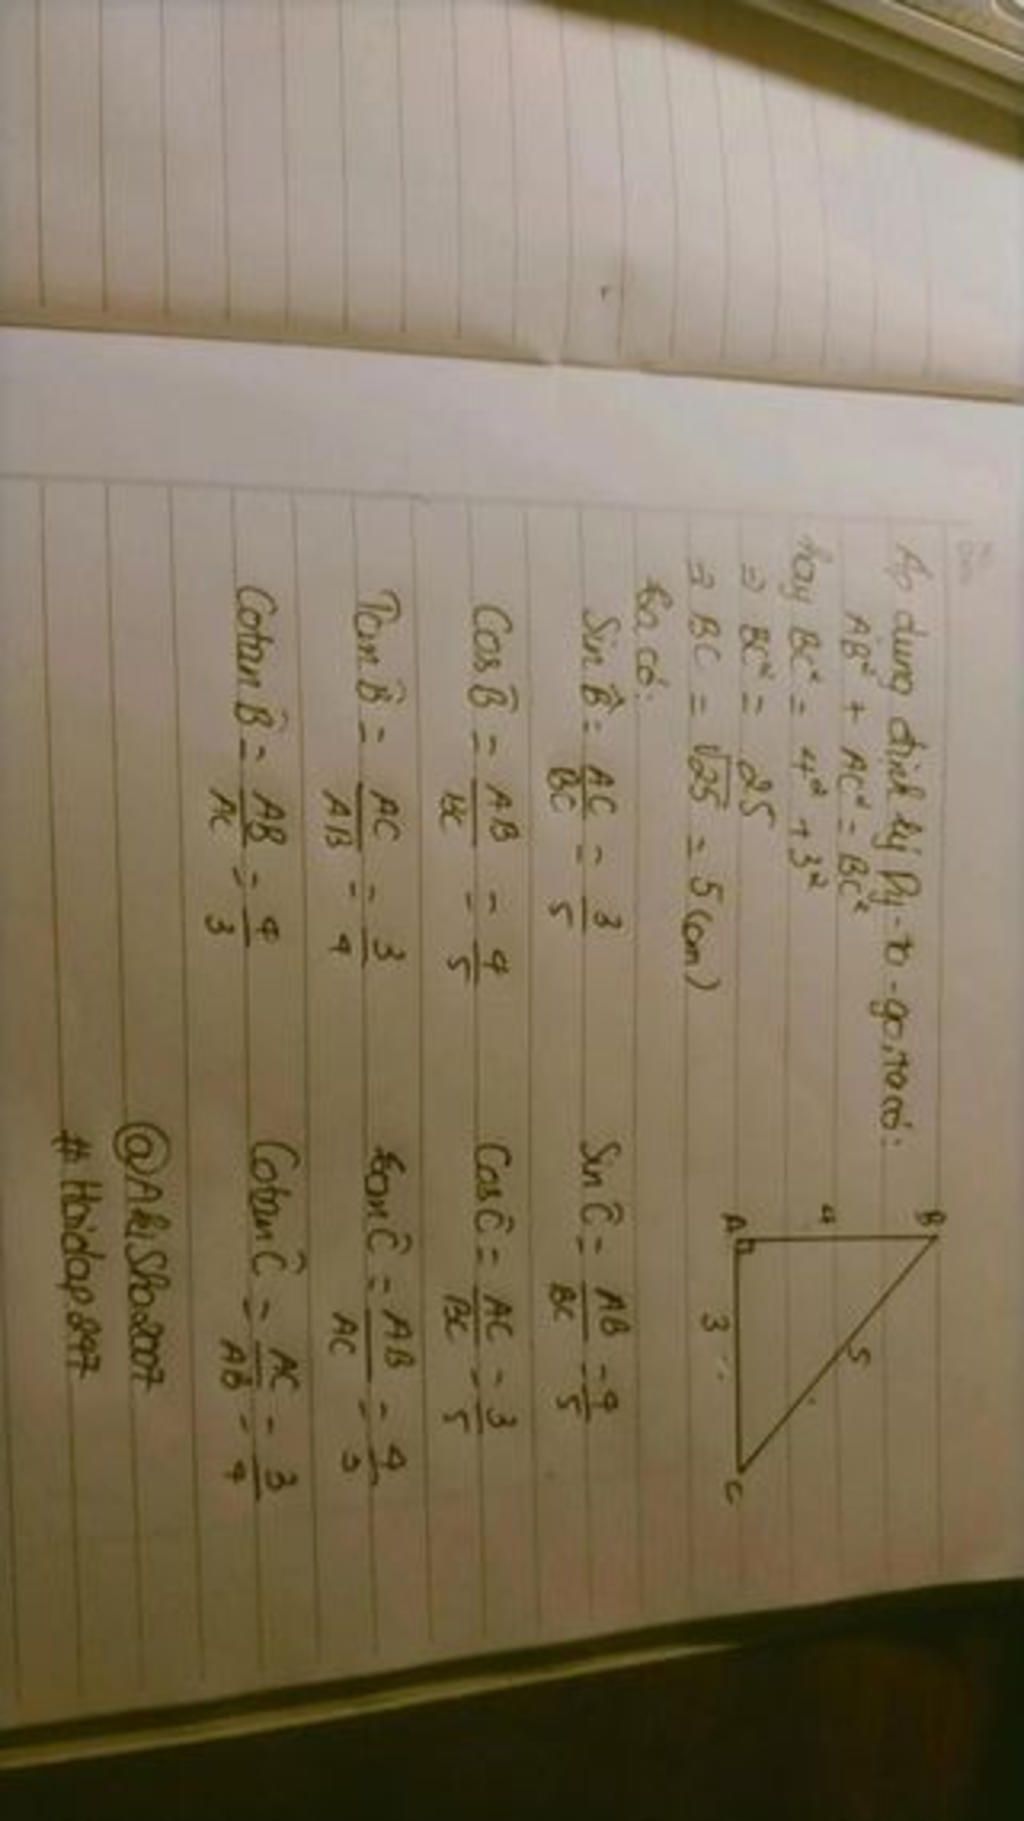 Áp dụng định lý Py-ta-go, ta có:
AB² + AC² = BC²
hay BC² = 4² + 3²
⇒ BC² = 25
⇒ BC = √25 = 5 (cm)
B
4
5
A
3
C
ta có:
Sin B̂ = AC/BC = 3/5 Sin Ĉ = AB/BC = 4/5
Cos B̂ = AB/BC = 4/5 Cos Ĉ = AC/BC = 3/5
Tan B̂ = AC/AB = 3/4 tan Ĉ = AB/AC = 4/3
Cotan B̂ = AB/AC = 4/3 Cotan Ĉ = AC/AB = 3/4
@AkiSho2007
# Hoidap247